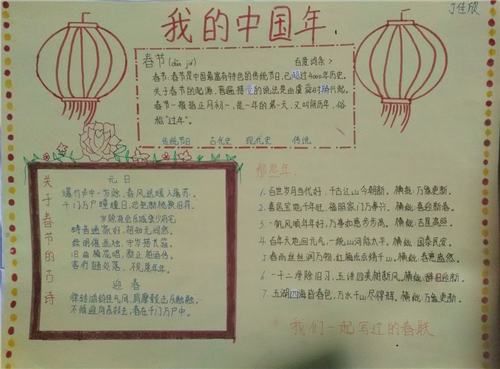 丁佳欣
我的中国年
春节(chūn jié) 百度词条>
春节:春节是中国最富有特色的传统节日,已超过4000年历史。
关于春节的起源,普遍接受的说法是由虞舜时期兴起。
春节一般指正月初一,是一年的第一天,又叫阴历年,俗
称“过年”。
传统节日 古代史 现代史 传说
关于春节的古诗
元日
爆竹声中一岁除,春风送暖入屠苏。
千门万户曈曈日,总把新桃换旧符。
迎春
律转鸿钧佳气同,肩摩毂击乐融融。
不须迎向东郊去,春在千门万户中。
1.百世岁月当代好,千古江山今朝新。横批:万象更新。
2.喜居宝地千年旺,福照家门万事兴。横批:喜迎新春。
3.一帆风顺年年好,万事如意步步高。横批:吉星高照。
4.百年天地回元气,一统山河际太平。横批:国泰民安。
5.春雨丝丝润万物,红梅点点绣千山。横批:春意盎然。
6.一干二净除旧习,五讲四美树新风。横批:辞旧迎新。
7.五湖四海皆春色,万水千山尽得辉。横批:万象更新。
我们一起写过的春联